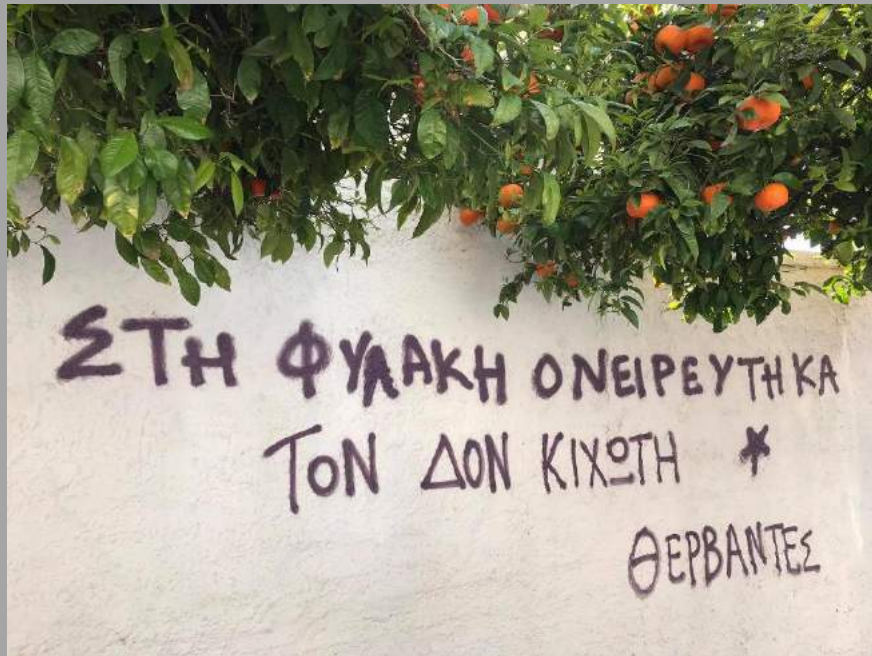 ΣΤΗ ΦΥΛΑΚΗ ΟΝΕΙΡΕΥΤΗΚΑ
ΤΟΝ ΔΟΝ ΚΙΧΩΤΗ *
ΘΕΡΒΑΝΤΕΣ